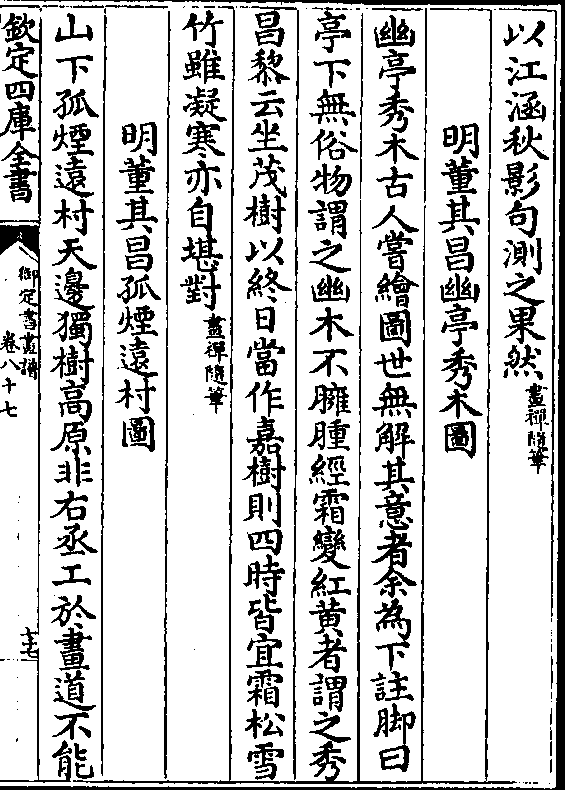 以江涵秋影句測之果然畫禪隨筆
明董其昌幽亭秀木圖
幽亭秀木古人嘗繪圖世無解其意者余為下註脚曰
亭下無俗物謂之幽木不臃腫經霜變紅黄者謂之秀
昌黎云坐茂樹以終日當作嘉樹則四時皆宜霜松雪
竹雖凝寒亦自堪對畫禪隨筆
明董其昌孤煙遠村圖
山下孤煙遠村天邊獨樹髙原非右丞工於畫道不能
欽定四庫全書
御定書畫譜
卷八十七
十七